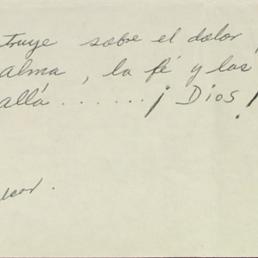 truye sobre el dolor,
alma, la fé y las
allá . . . . . . ¡ Dios !